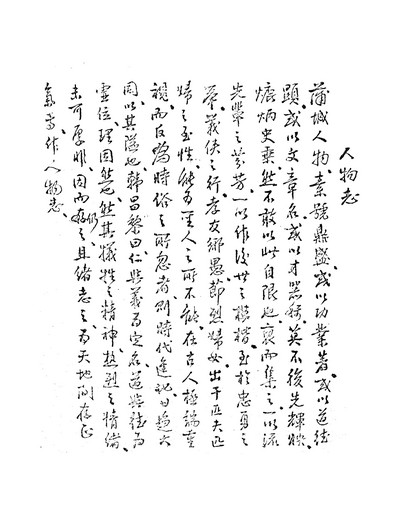 人物志
蒲城人物、素號鼎盛、或以功業著、或以道德
顯、或以文章名、或以才器稱、莫不後先輝映、
炳史乘、然不敢以此自限也、裒而集之、一以流
先輩之芬芳、一以作後世之楷模、至於忠勇之
義俠之行、孝友鄉愚、節烈婦女、出于匹夫匹
婦之至性、能為聖人之所不能、在古人極端重
視、而反為時俗之所忽者、則時代進化、日趨大
同、以其隘也、韓昌黎曰、仁與義為定名、道與德為
虛位、理固然也、然其犧牲之精神、熱烈之情緒、
未可厚非、因而仍之、且緒志之、為天地間存正
氣、旹作人物志、